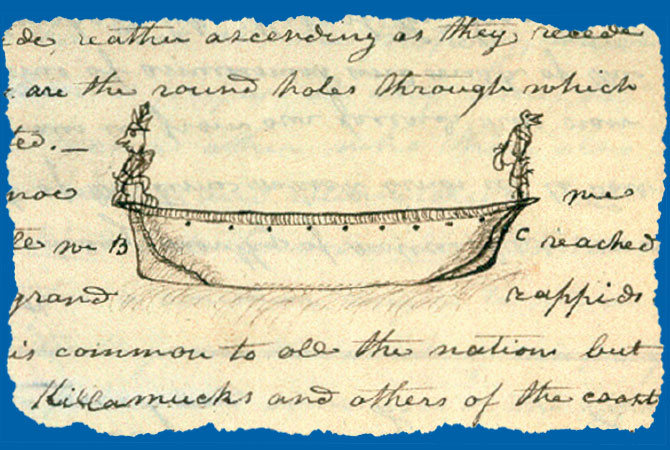 de reather ascending as they recede
are the round holes through which
ted.—
noe me
le we B C reached
grand rappids
is common to all the nation but
Killamucks and others of the coast